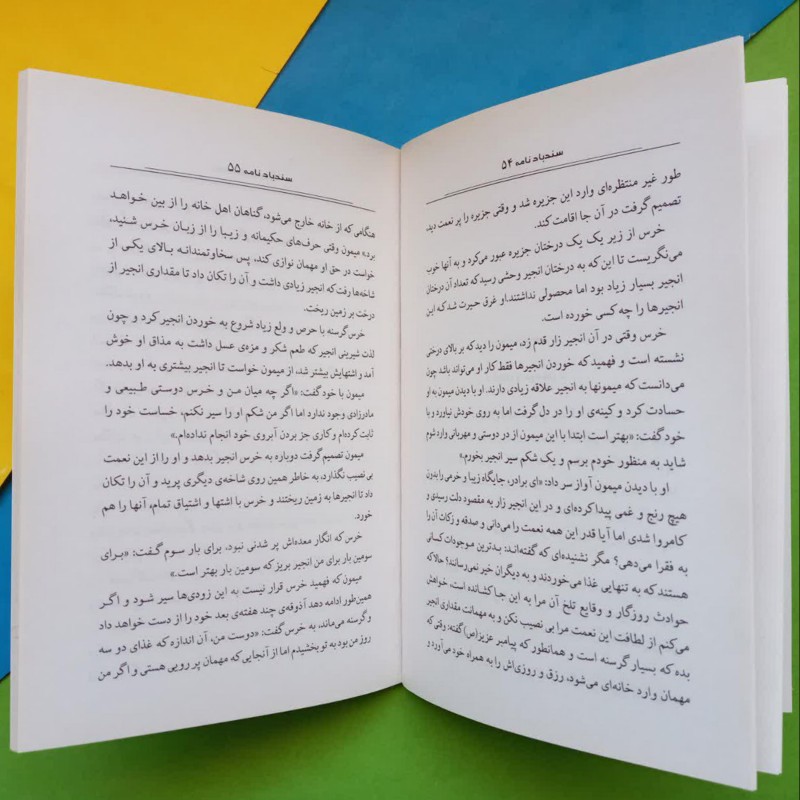 سندباد نامه ۵۴
طور غیر منتظره‌ای وارد این جزیره شد و وقتی جزیره را پر نعمت دید،
تصمیم گرفت در آن جا اقامت کند.
خرس از زیر یک یک درختان جزیره عبور می‌کرد و به آنها خوب
می‌نگریست تا این که به درختان انجیر وحشی رسید که تعداد آن درختان
انجیر بسیار زیاد بود اما محصولی نداشتند. او غرق حیرت شد که این
انجیرها را چه کسی خورده است.
خرس وقتی در آن انجیر زار قدم زد، میمون را دید که بر بالای درختی
نشسته است و فهمید که خوردن انجیرها فقط کار او می‌تواند باشد چون
می‌دانست که میمونها به انجیر علاقه زیادی دارند. او با دیدن میمون به او
حسادت کرد و کینه‌ی او را در دل گرفت اما به روی خودش نیاورد و با
خود گفت: «بهتر است ابتدا با این میمون از در دوستی و مهربانی وارد شوم
شاید به منظور خودم برسم و یک شکم سیر انجیر بخورم.»
او با دیدن میمون آواز سر داد: «ای برادر، جایگاه زیبا و خرمی را بدون
هیچ رنج و غمی پیدا کرده‌ای و در این انجیر زار به مقصود دلت رسیدی و
کامروا شدی اما آیا قدر این همه نعمت را می‌دانی و صدقه و زکات آن را
به فقرا می‌دهی؟ مگر نشنیده‌ای که گفته‌اند: بدترین موجودات کسانی
هستند که به تنهایی غذا می‌خوردند و به دیگران خیر نمی‌رسانند! حالا که
حوادث روزگار و وقایع تلخ آن مرا به این جا کشانده است، خواهش
می‌کنم از لطافت این نعمت مرا بی نصیب نکن و به مهمانت مقداری انجیر
بده که بسیار گرسنه است و همانطور که پیامبر عزیز(ص) گفته: وقتی که
مهمان وارد خانه‌ای می‌شود، رزق و روزی‌اش را به همراه خود می‌آورد و
سندباد نامه ۵۵
هنگامی که از خانه خارج می‌شود، گناهان اهل خانه را از بین خواهد
برد» میمون وقتی حرف‌های حکیمانه و زیبا را از زبان خرس شنید،
خواست در حق او مهمان نوازی کند، پس سخاوتمندانه بالای یکی از
شاخه‌ها رفت که انجیر زیادی داشت و آن را تکان داد تا مقداری انجیر از
درخت بر زمین ریخت.
خرس گرسنه با حرص و ولع زیاد شروع به خوردن انجیر کرد و چون
لذت شیرینی انجیر که طعم شکر و مزه‌ی عسل داشت به مذاق او خوش
آمد و اشتهایش بیشتر شد، از میمون خواست تا انجیر بیشتری به او بدهد.
میمون با خود گفت: «اگر چه میان من و خرس دوستی طبیعی و
مادرزادی وجود ندارد اما اگر من شکم او را سیر نکنم، خساست خود را
ثابت کرده‌ام و کاری جز بردن آبروی خود انجام نداده‌ام.»
میمون تصمیم گرفت دوباره به خرس انجیر بدهد و او را از این نعمت
بی نصیب نگذارد، به خاطر همین روی شاخه‌ی دیگری پرید و آن را تکان
داد تا انجیرها به زمین ریختند و خرس با اشتها و اشتیاق تمام، آنها را هم
خورد.
خرس که انگار معده‌اش پر شدنی نبود، برای بار سوم گفت: «برای
سومین بار برای من انجیر بریز که سومین بار بهتر است.»
میمون که فهمید خرس قرار نیست به این زودی‌ها سیر شود و اگر
همین‌طور ادامه دهد آذوقه‌ی چند هفته‌ی بعد خود را از دست خواهد داد
و گرسنه می‌ماند، به خرس گفت: «دوست من، آن اندازه که غذای دو سه
روز من بود به تو بخشیدم اما از آنجایی که مهمان پر رویی هستی و اگر من